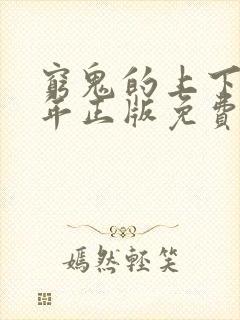 窮鬼的上下
年正版免費
嫣然輕笑